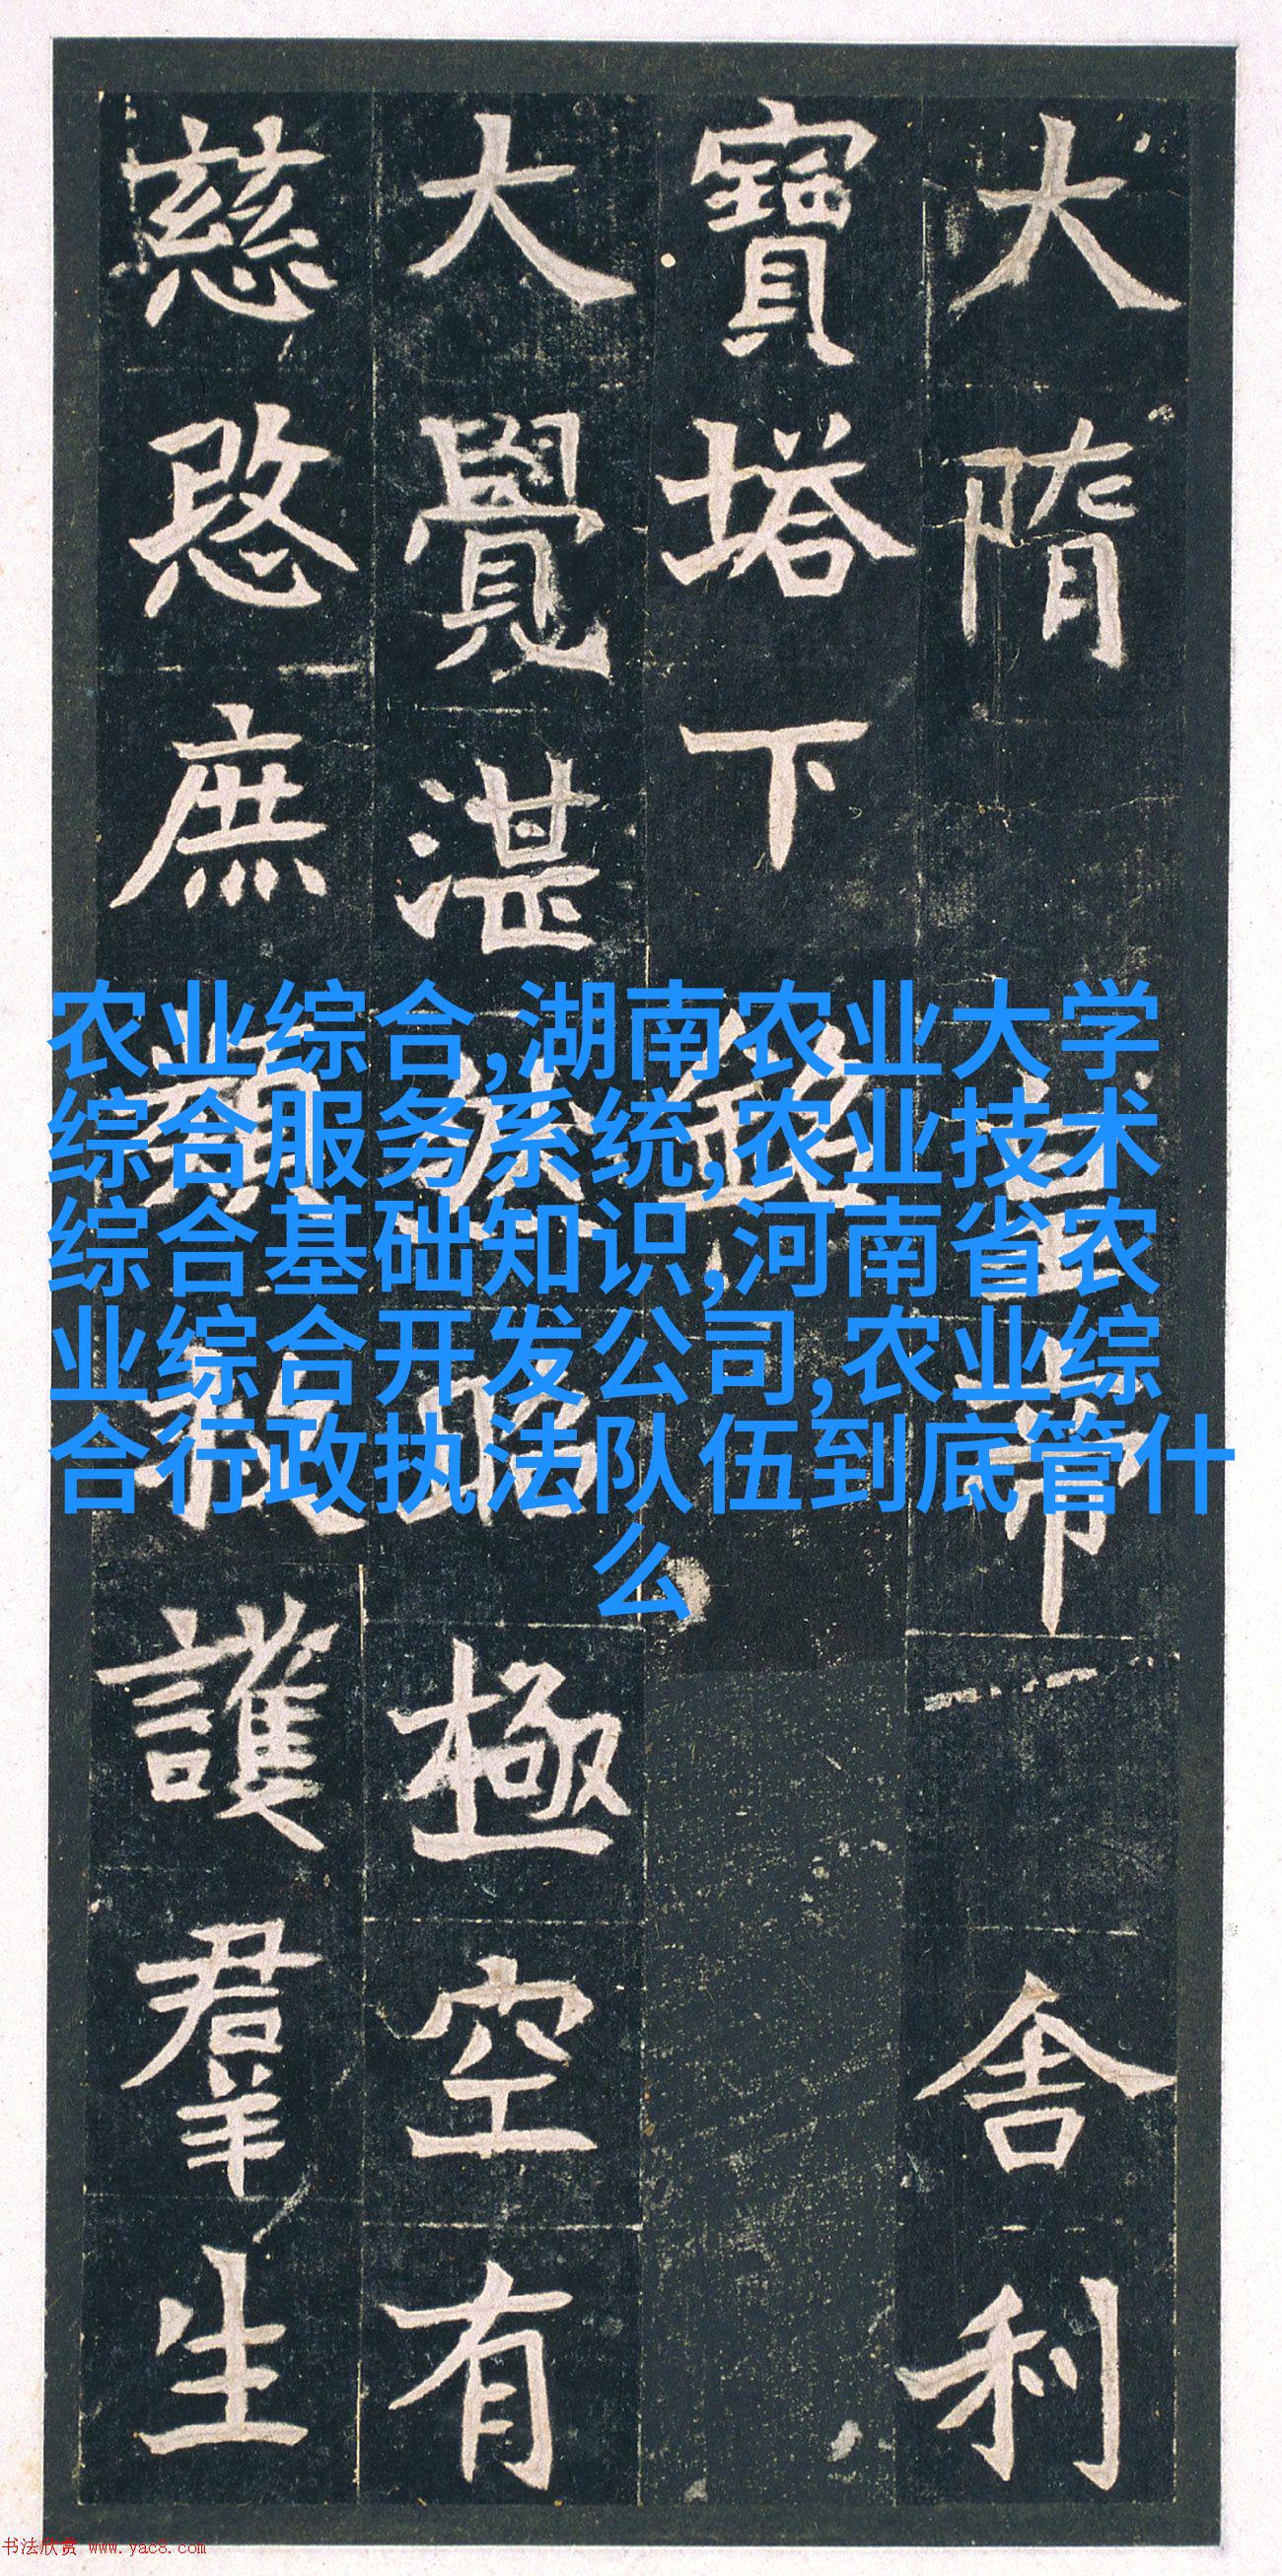 大隋皇帝舍利
寶塔下銘
大覺湛昭極空有
慈愍庶類救護羣生
农业综合,湖南农业大学
综合服务系统,农业技术
综合基础知识,河南省农
业综合开发公司,农业综
合行政执法队伍到底管什
么
书法欣赏 www.yac8.com